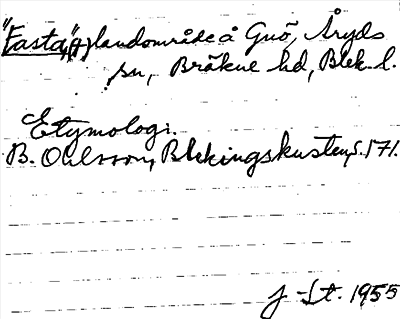 "Fasta", landområde å Guö, Åryds
sn, Bräkne hd, Blek. l.
Etymologi.
B. Ohlsson, Blekingskusten, s. 171.
J-St. 1955